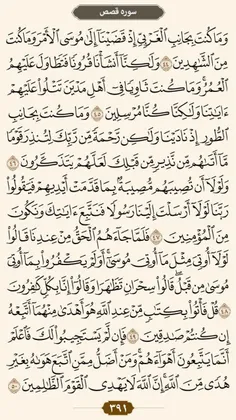 سوره قصص
وَمَا كُنتَ بِجَانِبِ ٱلْغَرْبِيِّ إِذْ قَضَيْنَآ إِلَىٰ مُوسَى ٱلْأَمْرَ وَمَا كُنتَ
مِنَ ٱلشَّٰهِدِينَ ٤٤ وَلَٰكِنَّآ أَنشَأْنَا قُرُونًا فَتَطَاوَلَ عَلَيْهِمُ
ٱلْعُمُرُ وَمَا كُنتَ ثَاوِيًا فِىٓ أَهْلِ مَدْيَنَ تَتْلُوا۟ عَلَيْهِمْ
ءَايَٰتِنَا وَلَٰكِنَّا كُنَّا مُرْسِلِينَ ٤٥ وَمَا كُنتَ بِجَانِبِ
ٱلطُّورِ إِذْ نَادَيْنَا وَلَٰكِن رَّحْمَةً مِّن رَّبِّكَ لِتُنذِرَ قَوْمًا
مَّآ أَتَىٰهُم مِّن نَّذِيرٍ مِّن قَبْلِكَ لَعَلَّهُمْ يَتَذَكَّرُونَ ٤٦
وَلَوْلَآ أَن تُصِيبَهُم مُّصِيبَةٌۢ بِمَا قَدَّمَتْ أَيْدِيهِمْ فَيَقُولُوا۟
رَبَّنَا لَوْلَآ أَرْسَلْتَ إِلَيْنَا رَسُولًا فَنَتَّبِعَ ءَايَٰتِكَ وَنَكُونَ
مِنَ ٱلْمُؤْمِنِينَ ٤٧ فَلَمَّا جَآءَهُمُ ٱلْحَقُّ مِنْ عِندِنَا قَالُوا۟
لَوْلَآ أُوتِىَ مِثْلَ مَآ أُوتِىَ مُوسَىٰٓ أَوَلَمْ يَكْفُرُوا۟ بِمَآ أُوتِىَ
مُوسَىٰ مِن قَبْلُ قَالُوا۟ سِحْرَانِ تَظَٰهَرَا وَقَالُوٓا۟ إِنَّا بِكُلٍّ كَٰفِرُونَ
٤٨ قُلْ فَأْتُوا۟ بِكِتَٰبٍ مِّنْ عِندِ ٱللَّهِ هُوَ أَهْدَىٰ مِنْهُمَآ أَتَّبِعْهُ
إِن كُنتُمْ صَٰدِقِينَ ٤٩ فَإِن لَّمْ يَسْتَجِيبُوا۟ لَكَ فَٱعْلَمْ
أَنَّمَا يَتَّبِعُونَ أَهْوَآءَهُمْ وَمَنْ أَضَلُّ مِمَّنِ ٱتَّبَعَ هَوَىٰهُ بِغَيْرِ
هُدًى مِّنَ ٱللَّهِ إِنَّ ٱللَّهَ لَا يَهْدِى ٱلْقَوْمَ ٱلظَّٰلِمِينَ ٥٠
٣٩١